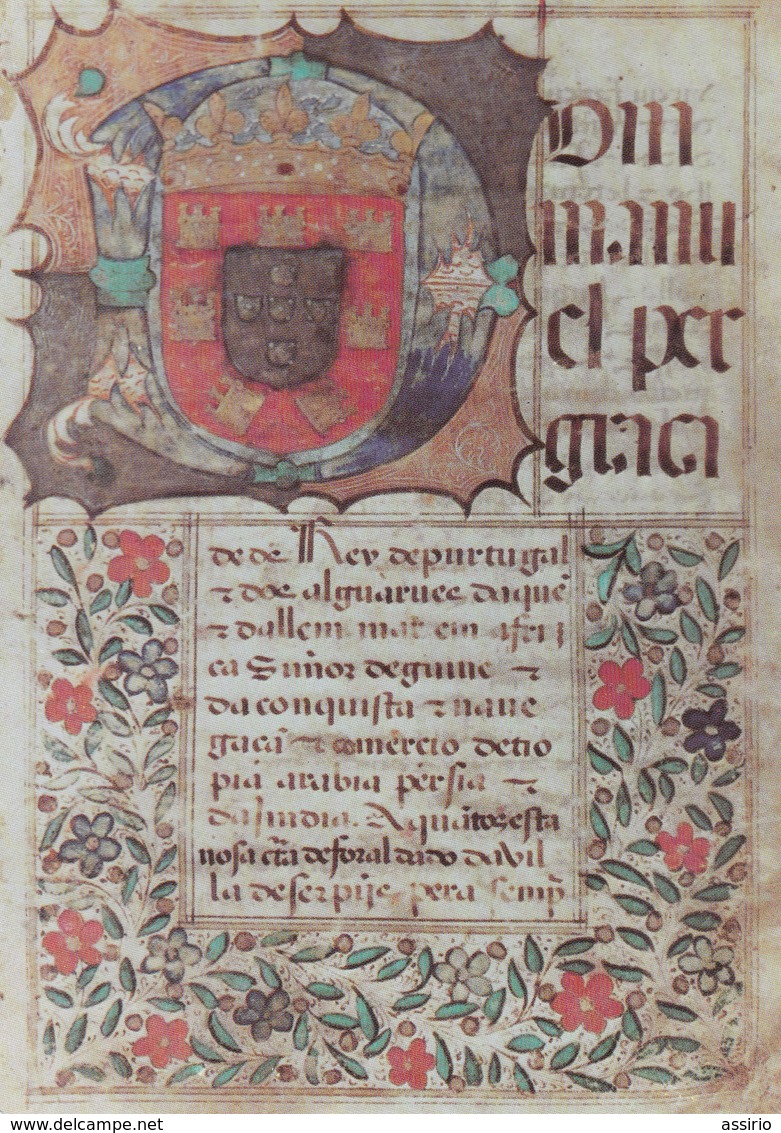 Dm
manu
el per
graça
de de Rey de purtugal
⁊ dos alguarues daquẽ
⁊ dallem mar em afri
ca Sñor de guine ⁊
da conquista ⁊ naue
gaçã ⁊ comercio de tio
pia arabia persia ⁊
da Jndia. A quãtos esta
nosa cr̃a de foral dado da vil
la de serpa pera semp̃
www.delcampe.net
assirio